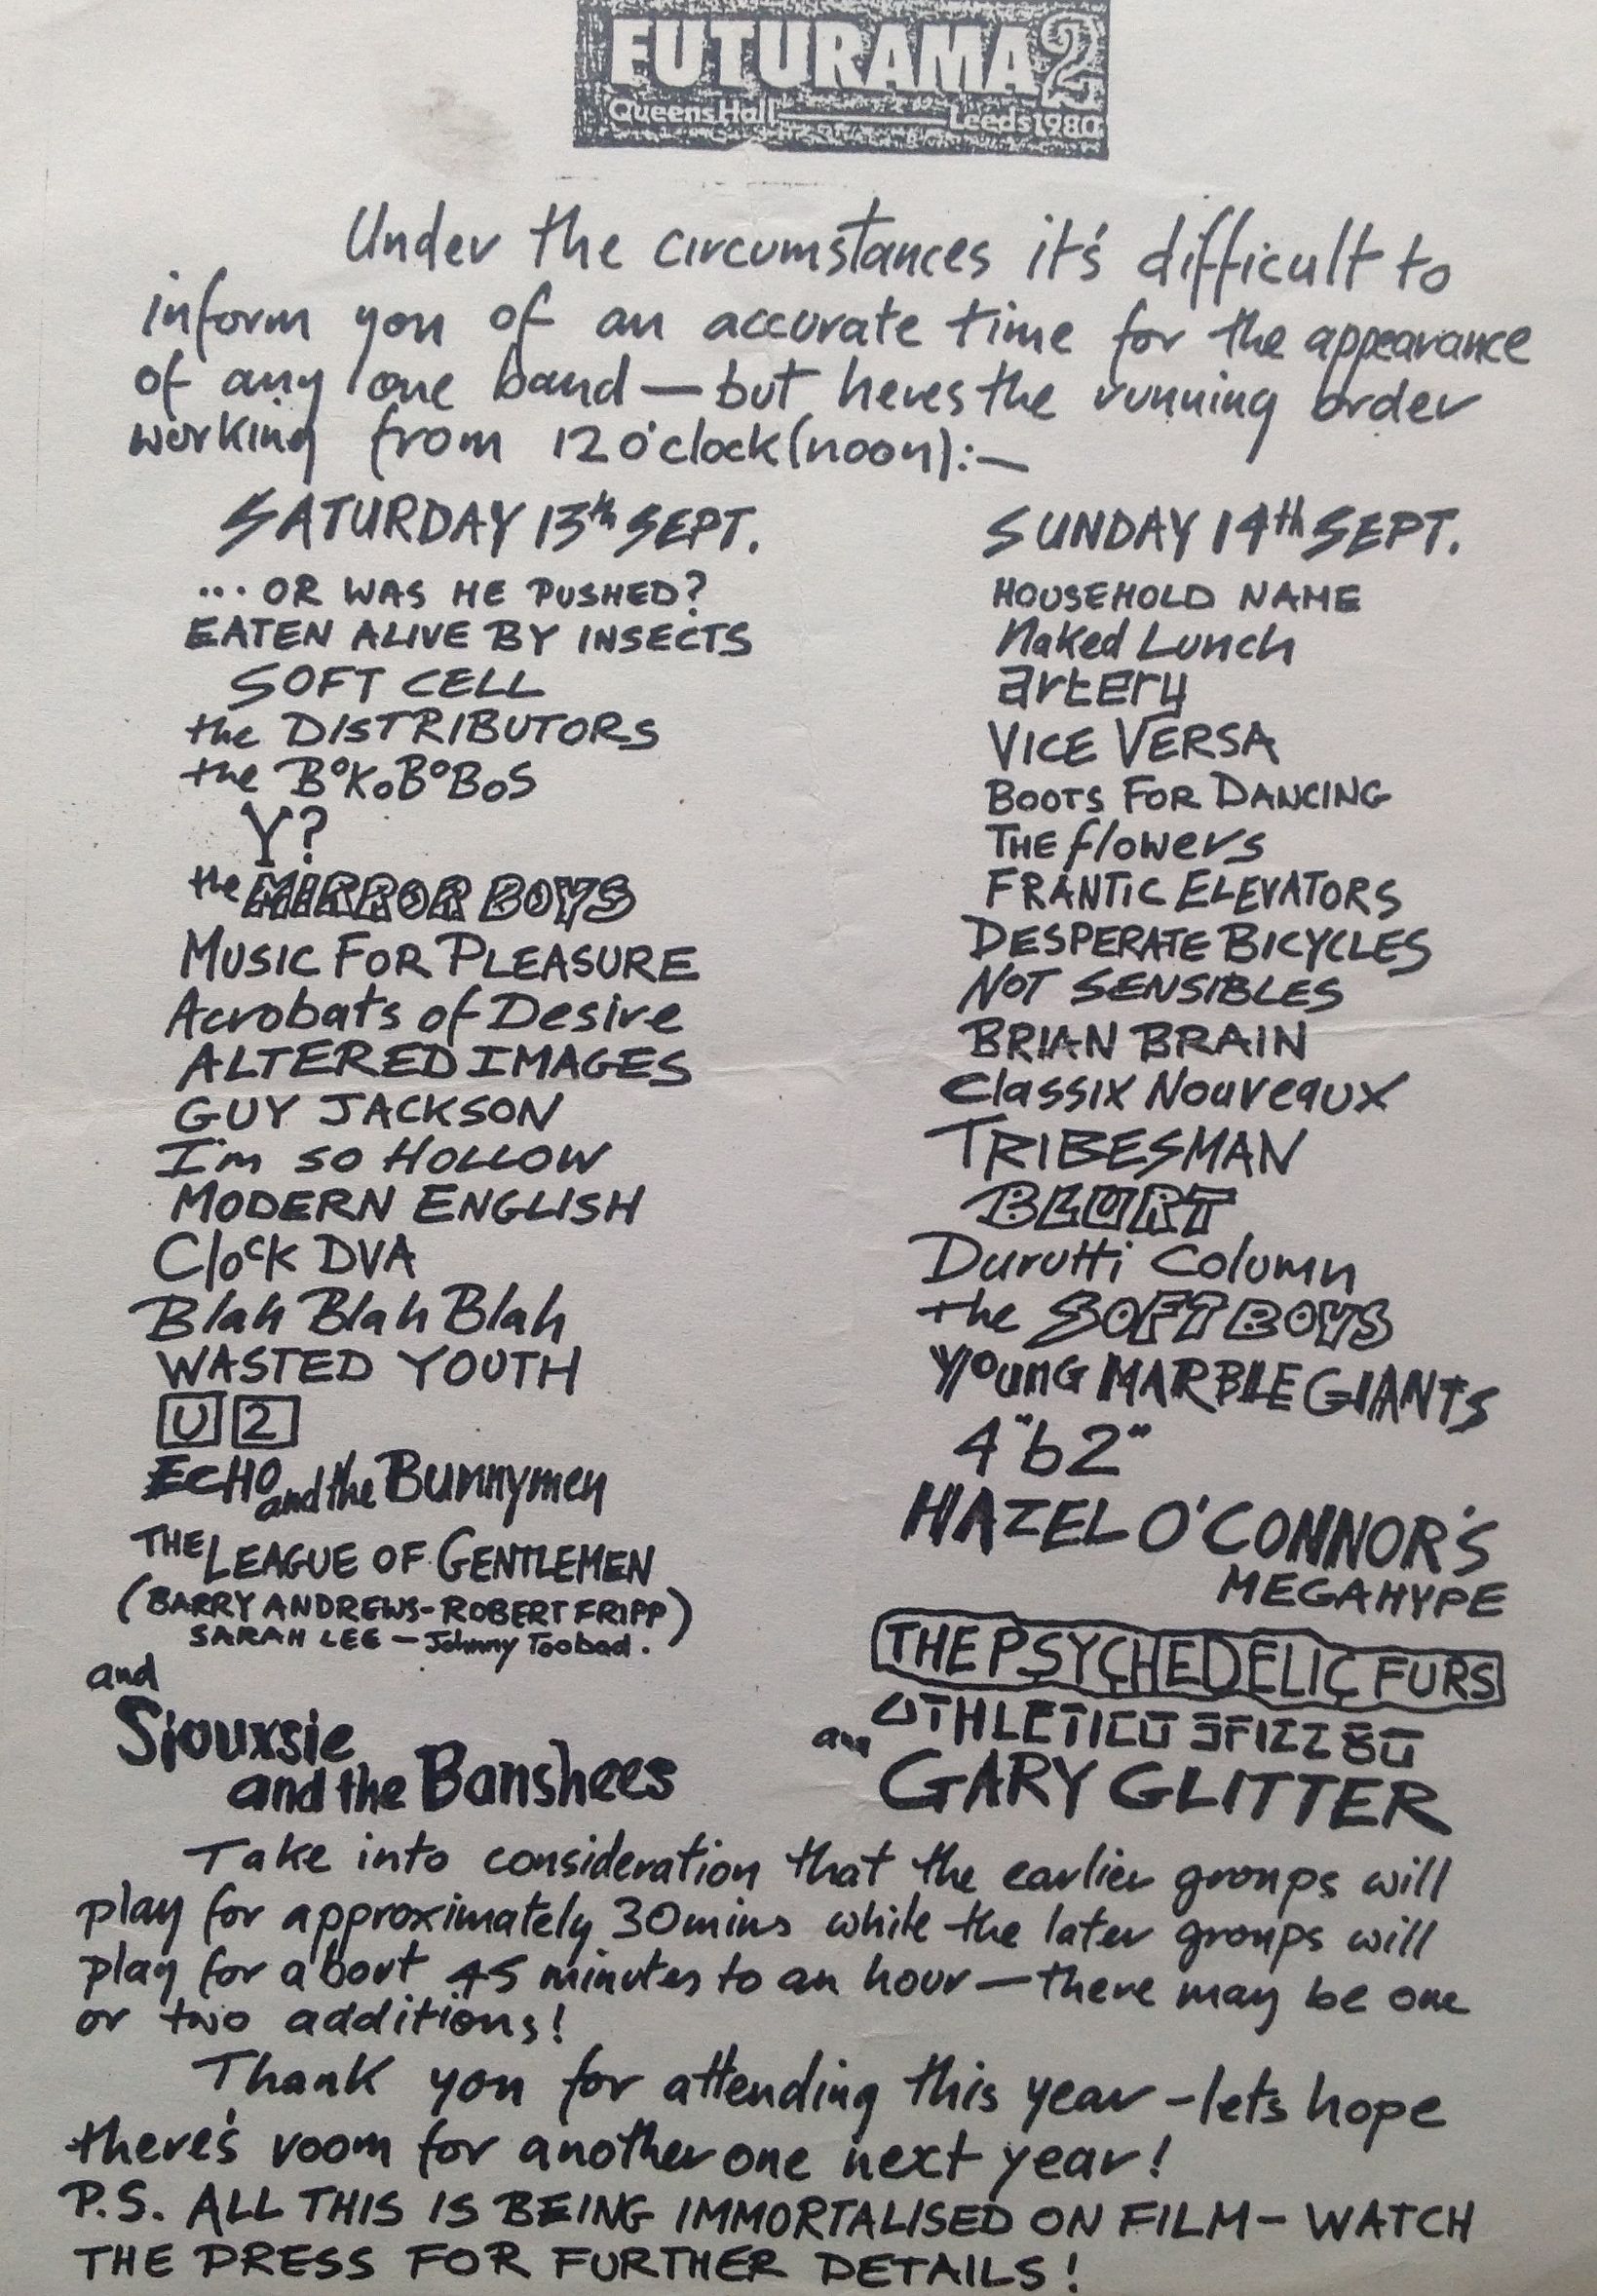 FUTURAMA 2
Queens Hall Leeds 1980
Under the circumstances it's difficult to
inform you of an accurate time for the appearance
of any one band — but heres the running order
working from 12 o'clock (noon):—
SATURDAY 13th SEPT.
... OR WAS HE PUSHED?
EATEN ALIVE BY INSECTS
SOFT CELL
the DISTRIBUTORS
the BoKoBoBoS
Y?
the MIRROR BOYS
MUSIC FOR PLEASURE
Acrobats of Desire
ALTERED IMAGES
GUY JACKSON
I'm so HOLLOW
MODERN ENGLISH
Clock DVA
Blah Blah Blah
WASTED YOUTH
U2
ECHO and the Bunnymen
THE LEAGUE OF GENTLEMEN
(BARRY ANDREWS - ROBERT FRIPP)
SARAH LEE — Johnny Toobad.
and
Siouxsie
and the Banshees
SUNDAY 14th SEPT.
HOUSEHOLD NAME
Naked Lunch
artery
VICE VERSA
BOOTS FOR DANCING
THE flowers
FRANTIC ELEVATORS
DESPERATE BICYCLES
NOT SENSIBLES
BRIAN BRAIN
Classix Nouveaux
TRIBESMAN
BLURT
Durutti Column
the SOFT BOYS
YOUNG MARBLE GIANTS
4"b2"
HAZEL O'CONNOR'S
MEGAHYPE
THE PSYCHEDELIC FURS
ATHLETICO SPIZZ 80
and
GARY GLITTER
Take into consideration that the earlier groups will
play for approximately 30mins while the later groups will
play for about 45 minutes to an hour — there may be one
or two additions!
Thank you for attending this year - lets hope
there's room for another one next year!
P.S. ALL THIS IS BEING IMMORTALISED ON FILM - WATCH
THE PRESS FOR FURTHER DETAILS!